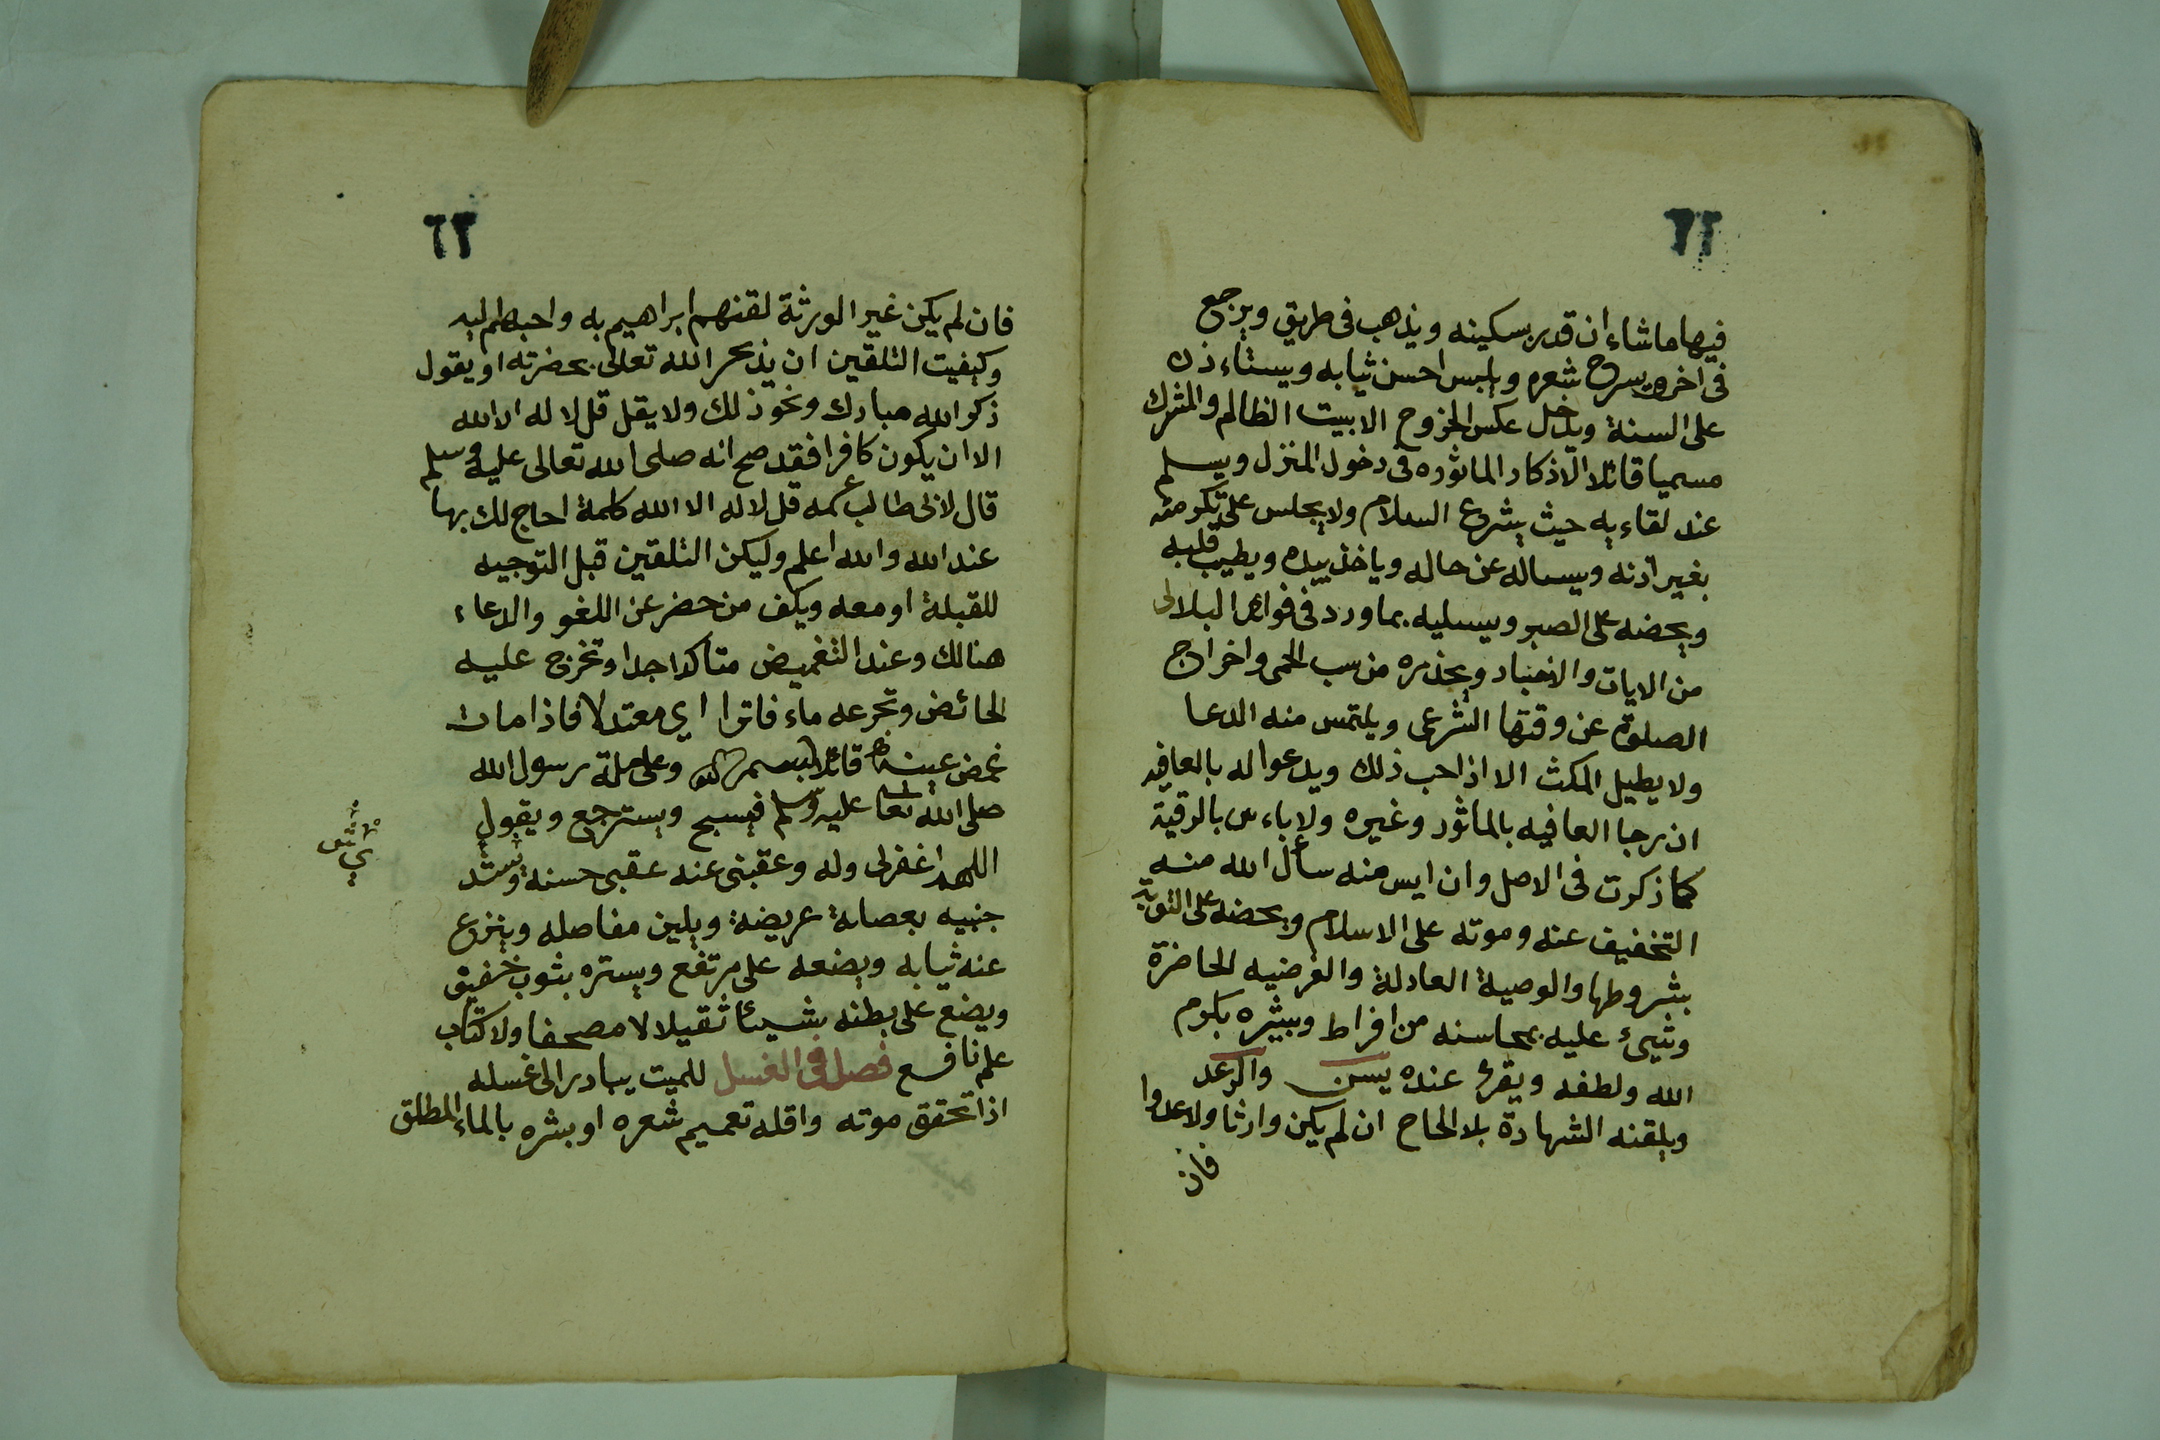 ٦٢
فيها ما شاء ان قدر بسكينه ويذهب فى طريق ويرجع
فى اخرى ويسرح شعره ويلبس احسن ثيابه ويستاءذن
على السنة ويدخل عكس الخروج الا بيت الظالم والمشرك
مسميا قائلا الاذكار الماثوره فى دخول المنزل ويسلم
عند لقاءيه حيث يشرع السلام ولا يجلس على تكرمته
بغير اذنه ويساله عن حاله وياخذ بيده ويطيب قلبه
ويحضه على الصبر ويسليه بما ورد فى فوائد البلا
من الايات والاخبار ويحذره من سب الحمى واخراج
الصلوة عن وقتها الشرعى ويلتمس منه الدعا
ولا يطيل المكث الا اذا احب ذلك ويدعوا له بالعافيه
ان رجا العافيه بالماثور وغيره ولا باءس بالرقية
كما ذكرت فى الاصل وان ايس منه سأل الله منه
التخفيف عنه وموته على الاسلام ويحضه على التوبة
بشروطها والوصية العادلة والفرضيه الحاضرة
وثيئ عليه بمحاسنه من افراط ويبشره بكرم
الله ولطفه ويقرء عنده يسن والرعد
ويلقنه الشهادة بلا الحاح ان لم يكن وارثا ولا عدوا
فان
٦٣
فان لم يكن غير الورثة لقنهم ابراهيم به واحبهم اليه
وكيفيت التلقين ان يذكر الله تعالى بحضرته او يقول
ذكر الله مبارك ونحو ذلك ولا يقل قل لا له الا الله
الا ان يكون كافرا فقد صح انه صلى الله تعالى عليه وسلم
قال لابى طالب عمه قل لا له الا الله كلمة احاج لك بها
عند الله والله اعلم وليكن التلقين قبل التوجيه
للقبلة او معه ويكف من حضر عن اللغو والدعاء
هنالك وعند التغميض متاكدا جدا وتخرج عليه
الحائض وتجرعه ماء فاترا اي معتدلا فاذا مات
غمض عينيه قائلا بسم الله وعلى ملة رسول الله
صلى الله تعا عليه وسلم فيسبح ويسترجع ويقول
اللهم اغفر لى وله وعقبنى عنه عقبى حسنه ويشد
جنبيه بعصابة عريضة ويلين مفاصله وينزع
عنه ثيابه ويضعه على مرتفع ويستره بثوب خفيق
ويضع على بطنه شيئا ثقيلا لا مصحفا ولا كتاب
علم نافع فصل فى الغسل للميت يبادر الى غسله
اذا تحقق موته واقله تعميم شعره او بشره بالماء المطلق